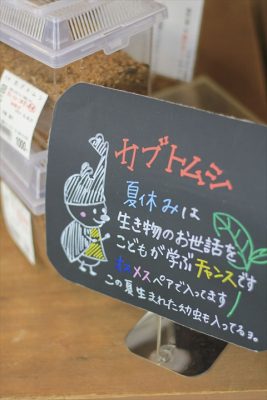 カブトムシ
夏休みは
生き物のお世話を
こどもが学ぶチャンスです
オスメスペアで入ってます
この夏生まれた幼虫も入ってるョ。